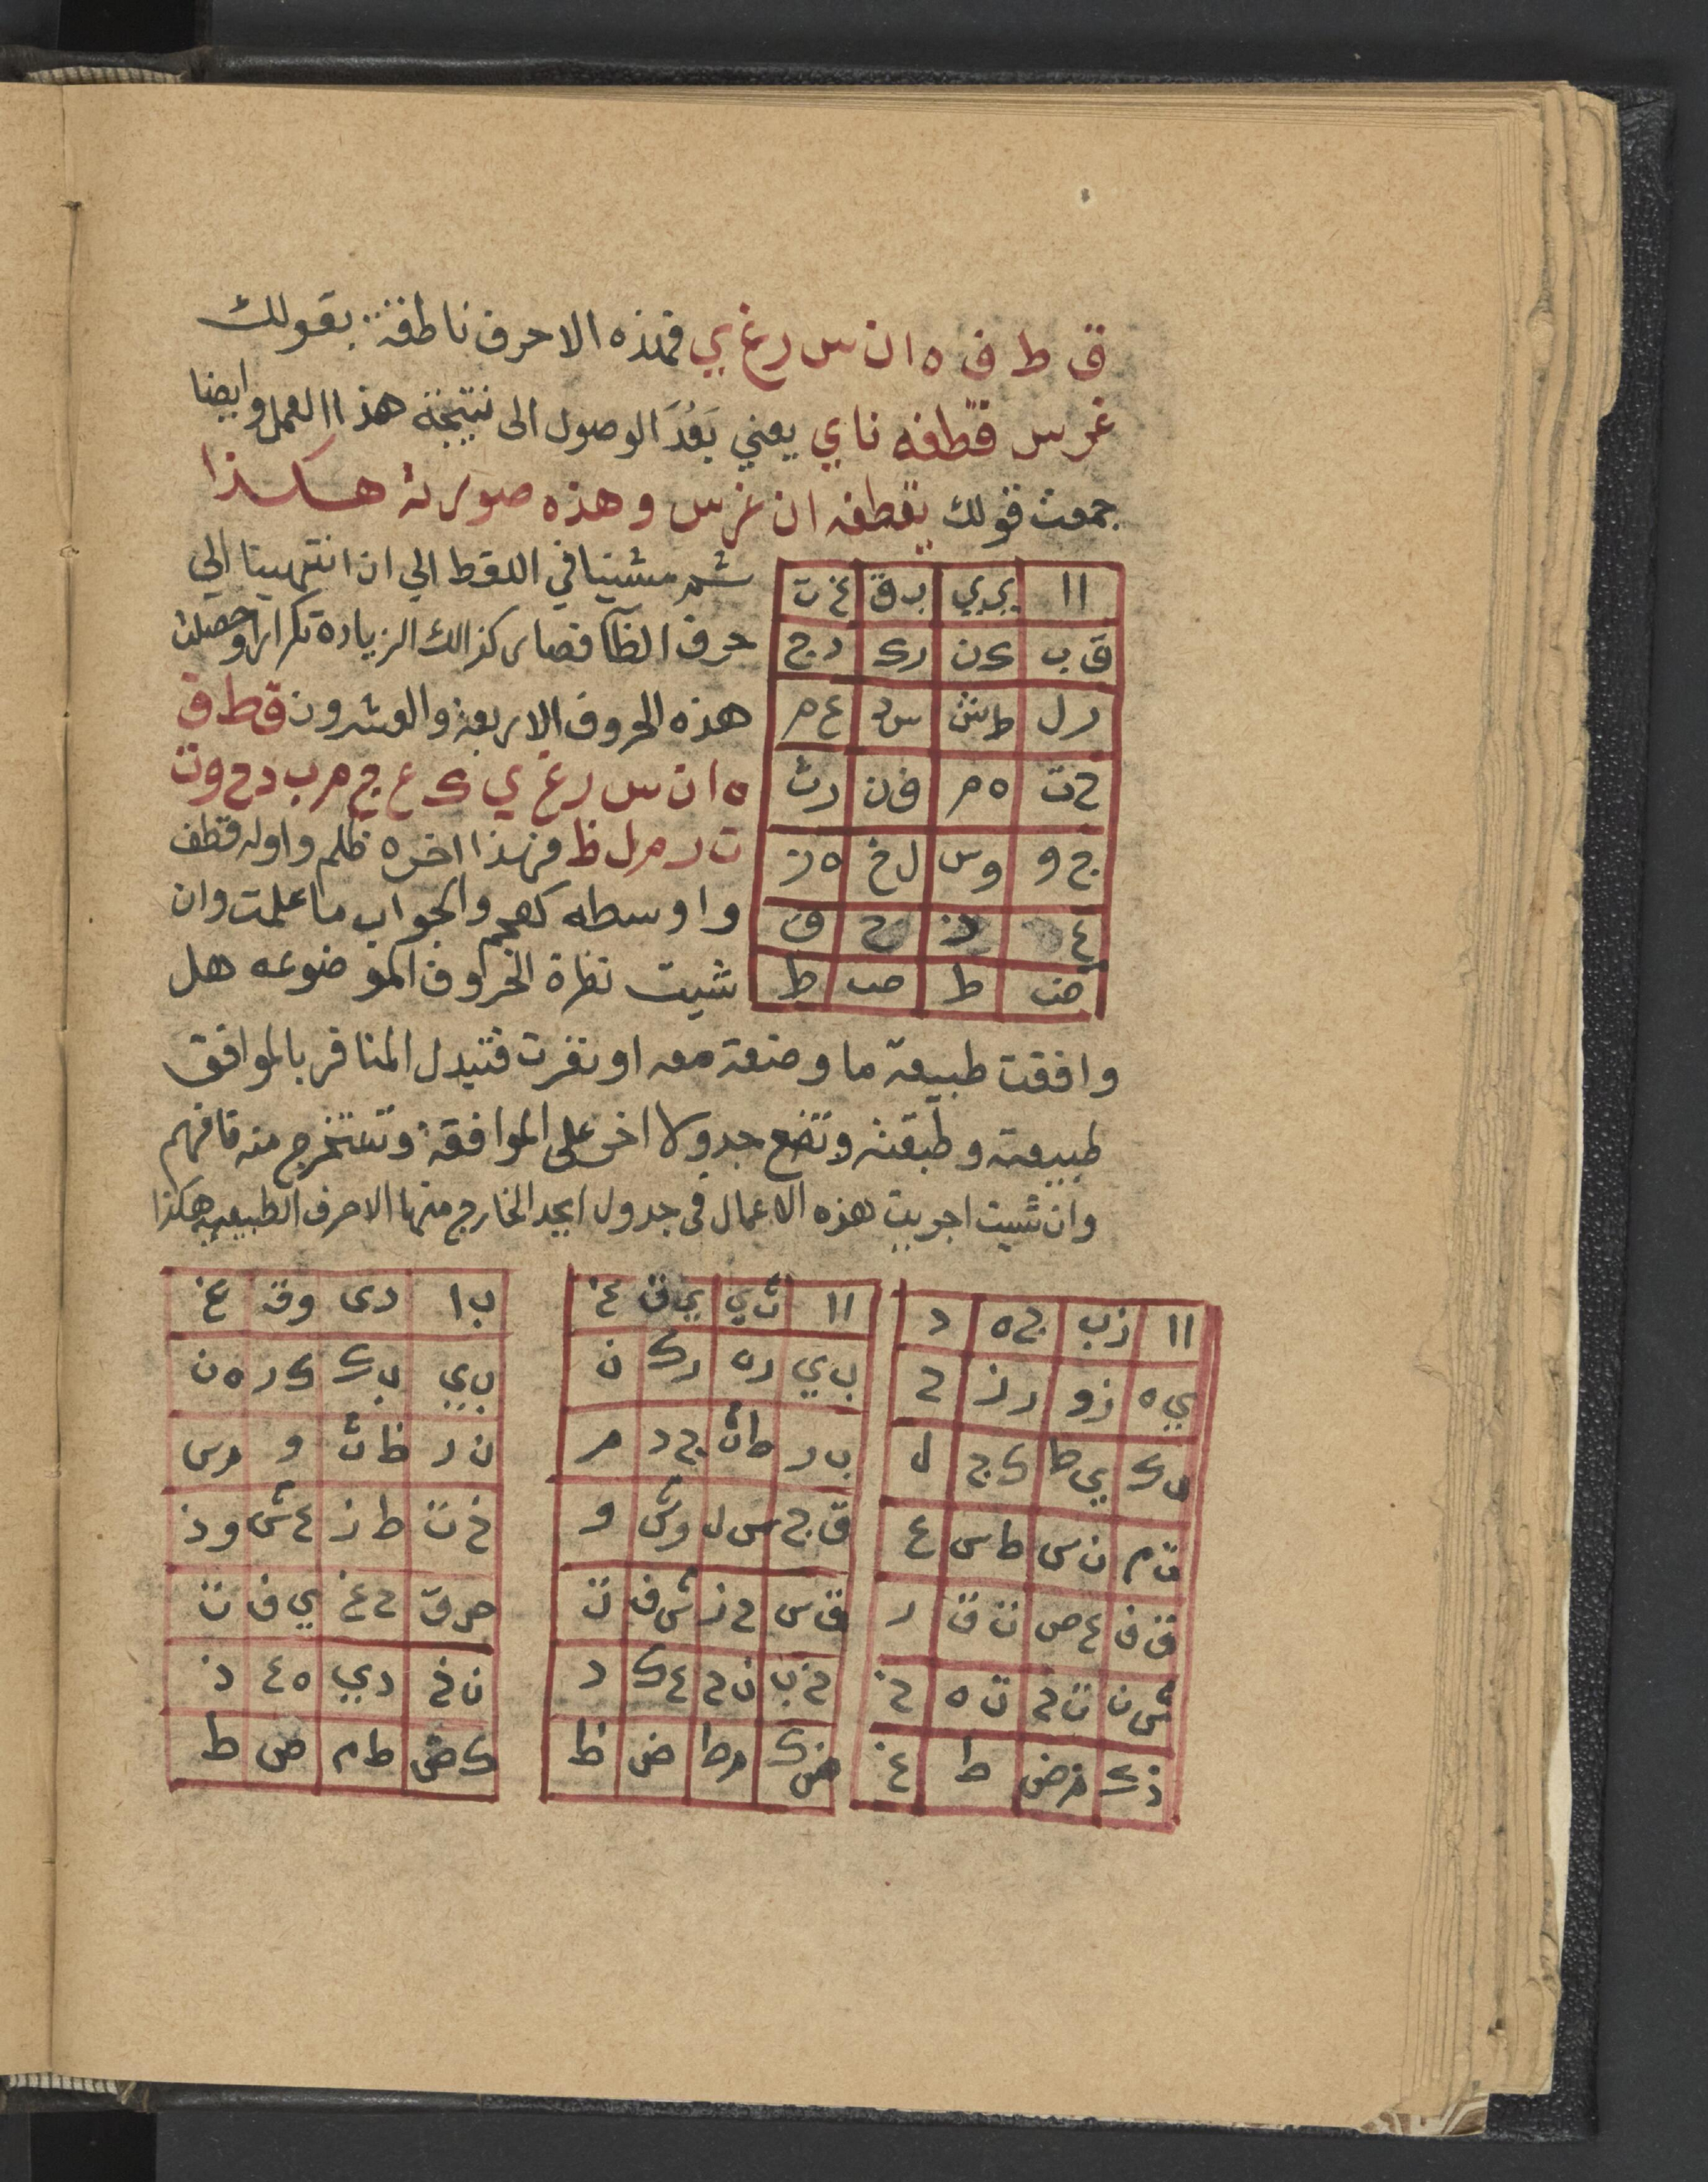 ق ط ف ه ا ن س ر غ ي فهذه الاحرف ناطقة بقولك
غرس قطفه ناي يعني بَعُدَ الوصول الى نتيجة هذا العمل وايضا
جمعت قولك يقطفه ان غرس وهذه صورته هكذا
ثم مشينا في اللقط الي ان انتهينا الي
حرف الظا فصار كذالك الزيادة تكرارا وحصلت
هذه الحروف الاربعة والعشرون ق ط ف
ه ا ن س ر غ ي ك ع ج م ب د ح و ت
ت ر م ل ظ فهذا اخره ظلم واوله قطف
واوسطه كعجم والجواب ما علمت وان
شيت نظرة الحروف الموضوعه هل
اا | ي ي | ب ق | غ ت
ق ب | ك ن | ر ك | د ج
ر ل | ط ش | س د | ع م
ح ت | ه م | ف ن | ر ث
ج و | و س | ل خ | ه ز
ع | ذ | ح | ق
ض | ط | ص | ط
وافقت طبيعة ما وضعة معه او نفرت فتبدل المنافر بالموافق
طبيعته وطبقته وتضع جدولا اخر على الموافقة وتستخرج منه فافهم
وان شيت اجريت هذه الاعمال في جدول ابجد الخارج منها الاحرف الطبيعيه هكذا
اا | ز ب | ج ه | د
ي ه | ز و | ر ز | ح
ب ك | ي ط | ك ج | ل
ق م | ن س | ط س | ع
ق ف | ع ص | ت ق | ر
ش ن | ت خ | ت ه | خ
ذ ك | م ض | ط | غ
اا | ث ي | ي ق | غ
ب ي | ر ه | ر ك | ن
ب ر | ط ث | ج د | م
ق ج | س ل | و ش | و
ق س | ح ز | ش ف | ت
خ ب | ن ح | ع ك | د
ض ك | م ط | ض | ظ
ب ا | د ى | و ق | غ
ب ي | ب ك | ك ر | ه ن
ن ر | ظ ث | و | م س
خ ت | ط ز | ع ش | و ذ
ص ق | ح غ | ي ف | ت
ن خ | د ي | ه ع | ذ
ك ض | ط م | ض | ط